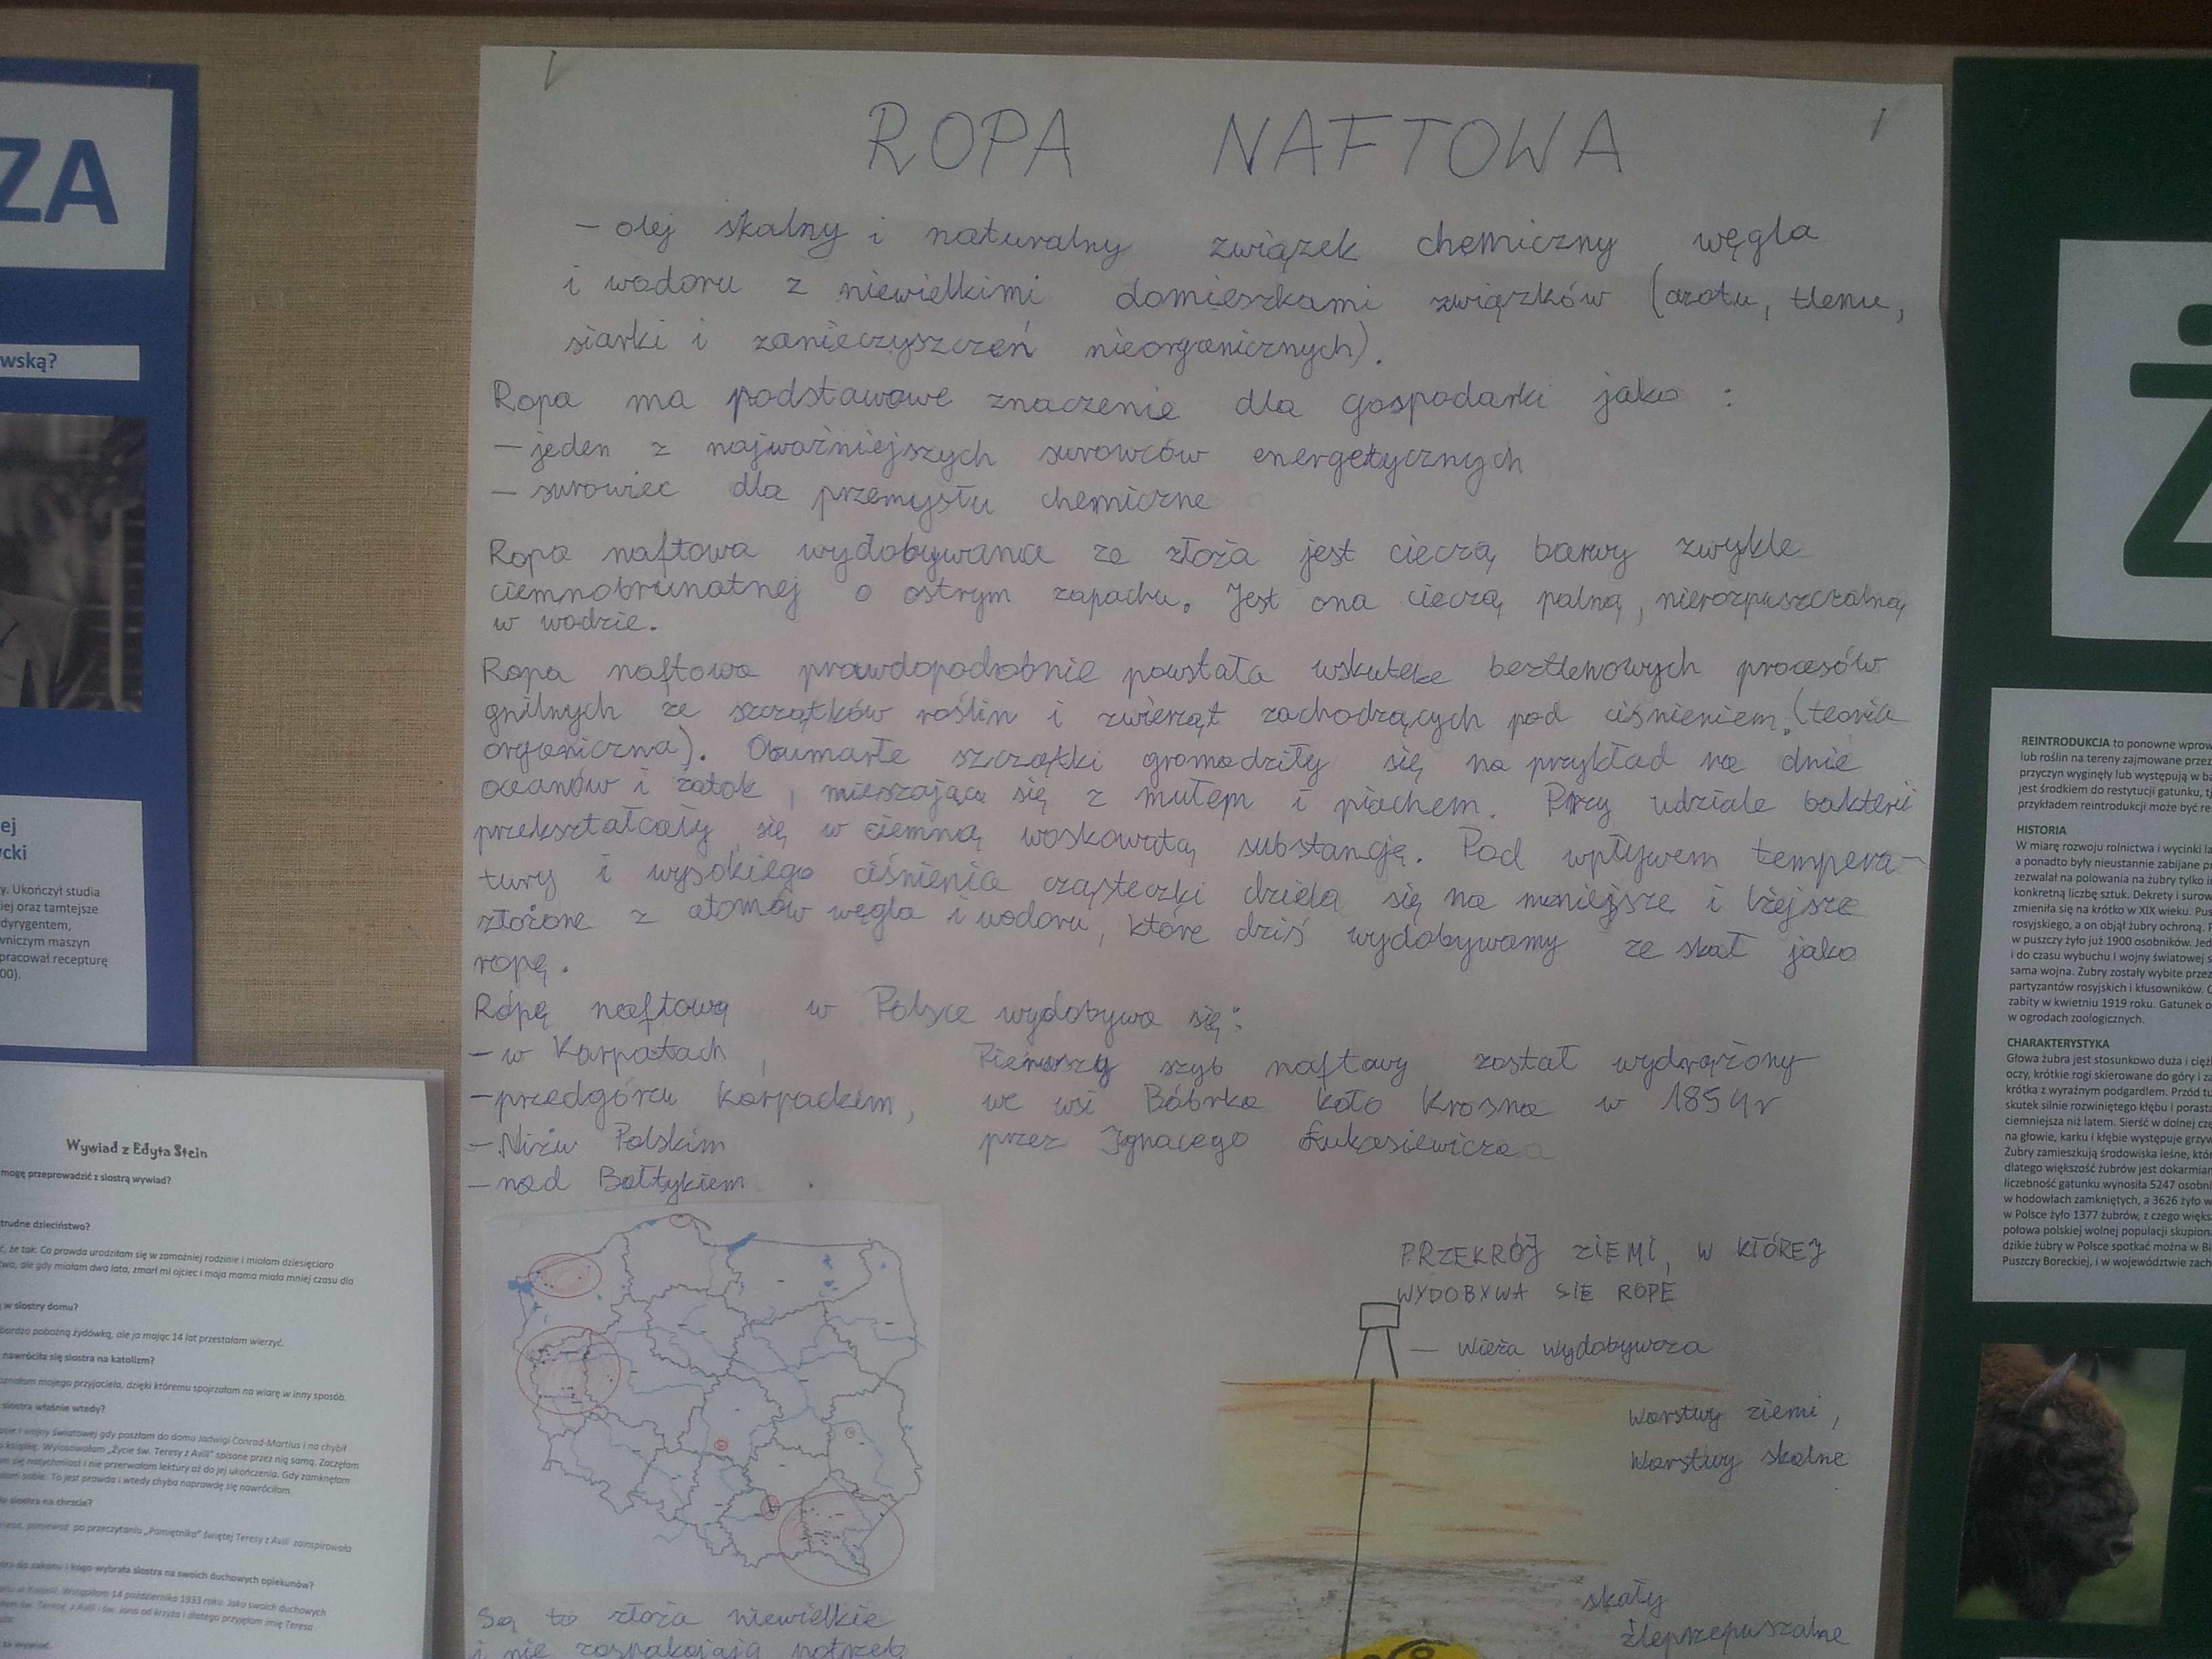 ROPA NAFTOWA
– olej skalny i naturalny związek chemiczny węgla
i wodoru z niewielkimi domieszkami związków (azotu, tlenu,
siarki i zanieczyszczeń nieorganicznych).
Ropa ma podstawowe znaczenie dla gospodarki jako :
– jeden z najważniejszych surowców energetycznych
– surowiec dla przemysłu chemiczne
Ropa naftowa wydobywana ze złoża jest cieczą barwy zwykle
ciemnobrunatnej o ostrym zapachu. Jest ona cieczą palną, nierozpuszczalną
w wodzie.
Ropa naftowa prawdopodobnie powstała wskutek beztlenowych procesów
gnilnych ze szczątków roślin i zwierząt zachodzących pod ciśnieniem. (teoria
organiczna). Obumarłe szczątki gromadziły się na przykład na dnie
oceanów i zatok , mieszając się z mułem i piachem. Przy udziale bakterii
przekształcały się w ciemną woskowatą substancję. Pod wpływem tempera-
tury i wysokiego ciśnienia cząsteczki dzielą się na mniejsze i lżejsze
złożone z atomów węgla i wodoru, które dziś wydobywamy ze skał jako
ropę.
Ropę naftową w Polsce wydobywa się:
– w Karpatach ,
– przedgórzu karpackim,
– Niżu Polskim
– nad Bałtykiem
Pierwszy szyb naftowy został wydrążony
we wsi Bóbrka koło Krosna w 1854r
przez Ignacego Łukasiewicza
PRZEKRÓJ ZIEMI, W KTÓREJ
WYDOBYWA SIĘ ROPĘ
– wieża wydobywcza
warstwy ziemi,
warstwy skalne
skały
źleprzepuszczalne
Są to złoża niewielkie
i nie zaspakajają potrzeb
ZA
wską?
ej
cki
y. Ukończył studia
iej oraz tamtejsze
dyrygentem,
wniczym maszyn
pracował recepturę
00).
Wywiad z Edytą Stein
mogę przeprowadzić z siostrą wywiad?
trudne dzieciństwo?
ć, że tak. Co prawda urodziłam się w zamożniej rodzinie i miałam dziesięcioro
two, ale gdy miałam dwa lata, zmarł mi ojciec i moja mama miała mniej czasu dla
w siostry domu?
bardzo pobożną żydówką, ale ja mając 14 lat przestałam wierzyć.
nawróciła się siostra na katolizm?
oznałam mojego przyjaciela, dzięki któremu spojrzałam na wiarę w inny sposób.
siostra właśnie wtedy?
I wojny światowej gdy poszłam do domu Jadwigi Conrad-Martius i na chybił
książkę. Wylosowałam „Życie św. Teresy z Avili" spisane przez nią samą. Zaczęłam
się natychmiast i nie przerwałam lektury aż do jej ukończenia. Gdy zamknęłam
sobie. To jest prawda i wtedy chyba naprawdę się nawróciłam.
siostra na chrzcie?
ponieważ po przeczytaniu „Pamiętnika" świętej Teresy z Avili zainspirowała
do zakonu i kogo wybrała siostra na swoich duchowych opiekunów?
14 października 1933 roku. Jako swoich duchowych
św. Teresę z Avili i św. Jana od krzyża i dlatego przyjęłam imię Teresa
za wywiad.
Ż
REINTRODUKCJA to ponowne wprow
lub roślin na tereny zajmowane przez
przyczyn wyginęły lub występują w ba
jest środkiem do restytucji gatunku, tj
przykładem reintrodukcji może być re
HISTORIA
W miarę rozwoju rolnictwa i wycinki la
a ponadto były nieustannie zabijane pr
zezwalał na polowania na żubry tylko i
konkretną liczbę sztuk. Dekrety i surow
zmieniła się na krótko w XIX wieku. Pus
rosyjskiego, a on objął żubry ochroną. P
w puszczy żyło już 1900 osobników. Jed
i do czasu wybuchu I wojny światowej s
sama wojna. Żubry zostały wybite przez
partyzantów rosyjskich i kłusowników. O
zabity w kwietniu 1919 roku. Gatunek o
w ogrodach zoologicznych.
CHARAKTERYSTYKA
Głowa żubra jest stosunkowo duża i cięż
oczy, krótkie rogi skierowane do góry i za
krótka z wyraźnym podgardlem. Przód tu
skutek silnie rozwiniętego kłębu i porasta
ciemniejsza niż latem. Sierść w dolnej czę
na głowie, karku i kłębie występuje grzyw
Żubry zamieszkują środowiska leśne, któr
dlatego większość żubrów jest dokarmian
liczebność gatunku wynosiła 5247 osobni
w hodowlach zamkniętych, a 3626 żyło w
w Polsce żyło 1377 żubrów, z czego więks
połowa polskiej wolnej populacji skupiona
dzikie żubry w Polsce spotkać można w Bi
Puszczy Boreckiej, i w województwie zach